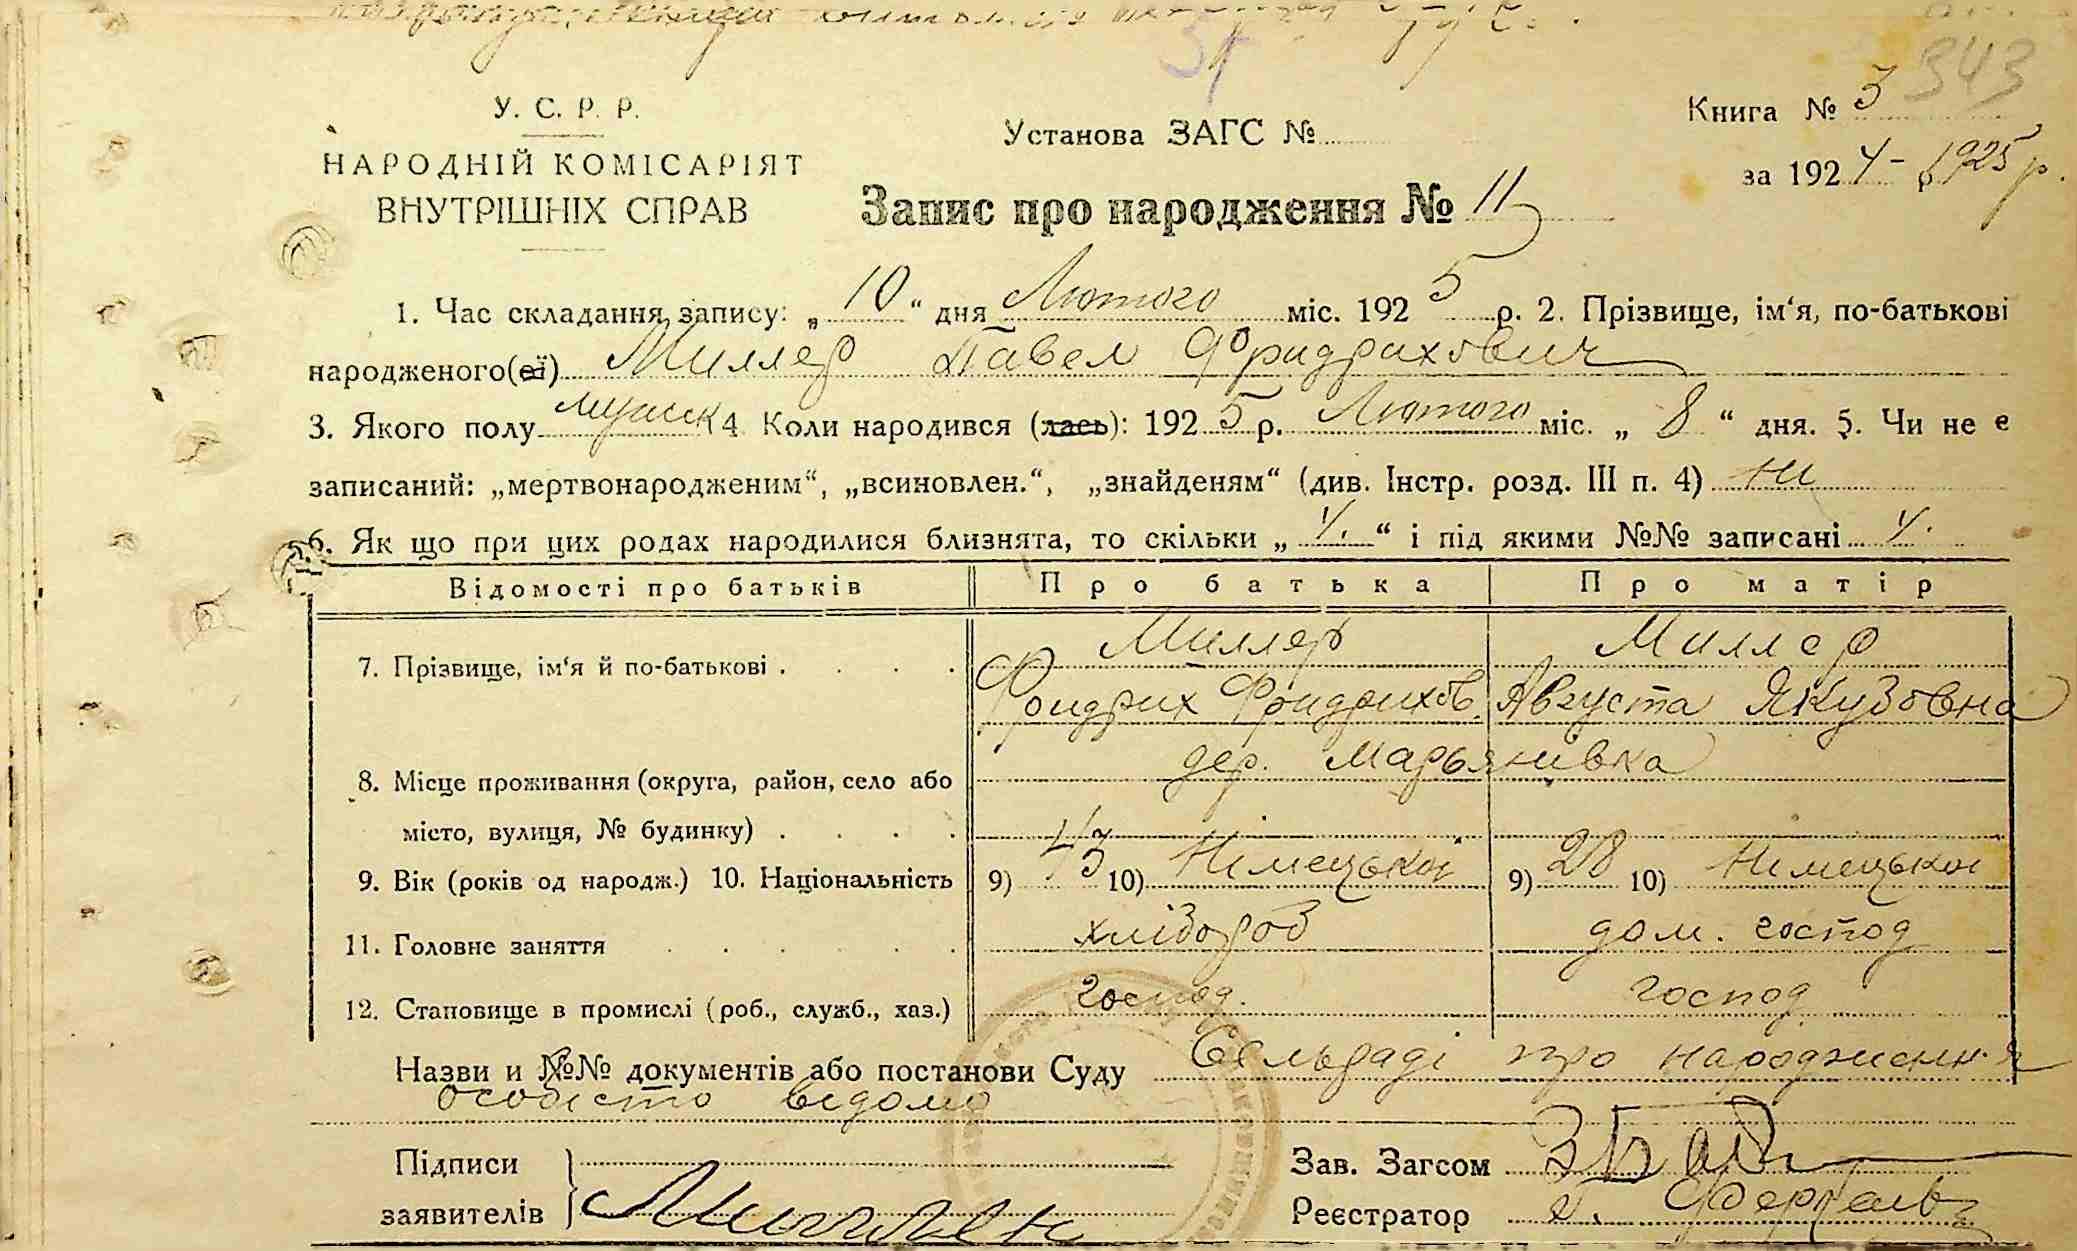 343
У. С. Р. Р.
НАРОДНІЙ КОМІСАРІЯТ
ВНУТРІШНІХ СПРАВ
Установа ЗАГС №
Книга № 3
за 1924 - 1925 р.
Запис про народження № 11
1. Час складання запису: „ 10 “ дня Лютого міс. 1925 р. 2. Прізвище, ім‘я, по-батькові
народженого(еї) Миллер Павел Фридрихович
3. Якого полу мужск 4 Коли народився (лась): 1925 р. Лютого міс. „ 8 “ дня. 5. Чи не є
записаний: „мертвонародженим“, „всиновлен.“, „знайденям“ (див. Інстр. розд. III п. 4) ни
6. Як що при цих родах народилися близнята, то скільки „ “ і під якими №№ записані
Відомості про батьків Про батька Про матір
7. Прізвище, ім‘я й по-батькові . . . . Миллер Миллер
Фридрих Фридрихов. Августа Якузовна
8. Місце проживання (округа, район, село або дер. Марьянівка
місто, вулиця, № будинку) . . . .
9. Вік (років од народж.) 10. Національність 9) 43 10) Німецької 9) 28 10) Німецької
11. Головне заняття . . . . . хлібороб дом. господ
12. Становище в промислі (роб., служб., хаз.) господ. господ
Назви и №№ документів або постанови Суду Сельраді про народження
особісто відомо
Підписи
заявителів
Зав. Загсом
Реєстратор